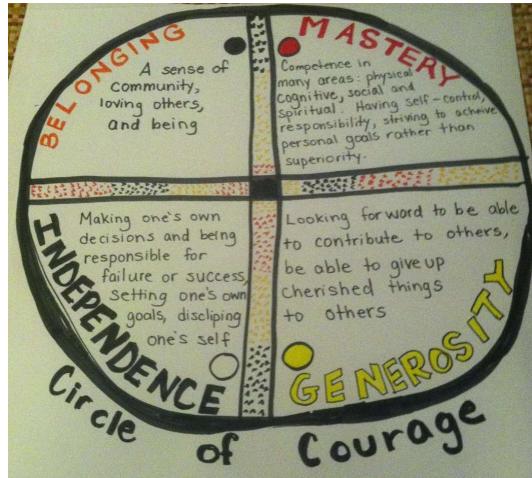 BELONGING
A sense of
community,
loving others,
and being
MASTERY
Competence in
many areas: physical
cognitive, social and
spiritual. Having self-control,
responsibility, striving to achieve
personal goals rather than
superiority.
INDEPENDENCE
Making one's own
decisions and being
responsible for
failure or success,
setting one's own
goals, discliping
one's self
Looking for word to be able
to contribute to others,
be able to give up
cherished things
to others
GENEROSITY
Circle of Courage